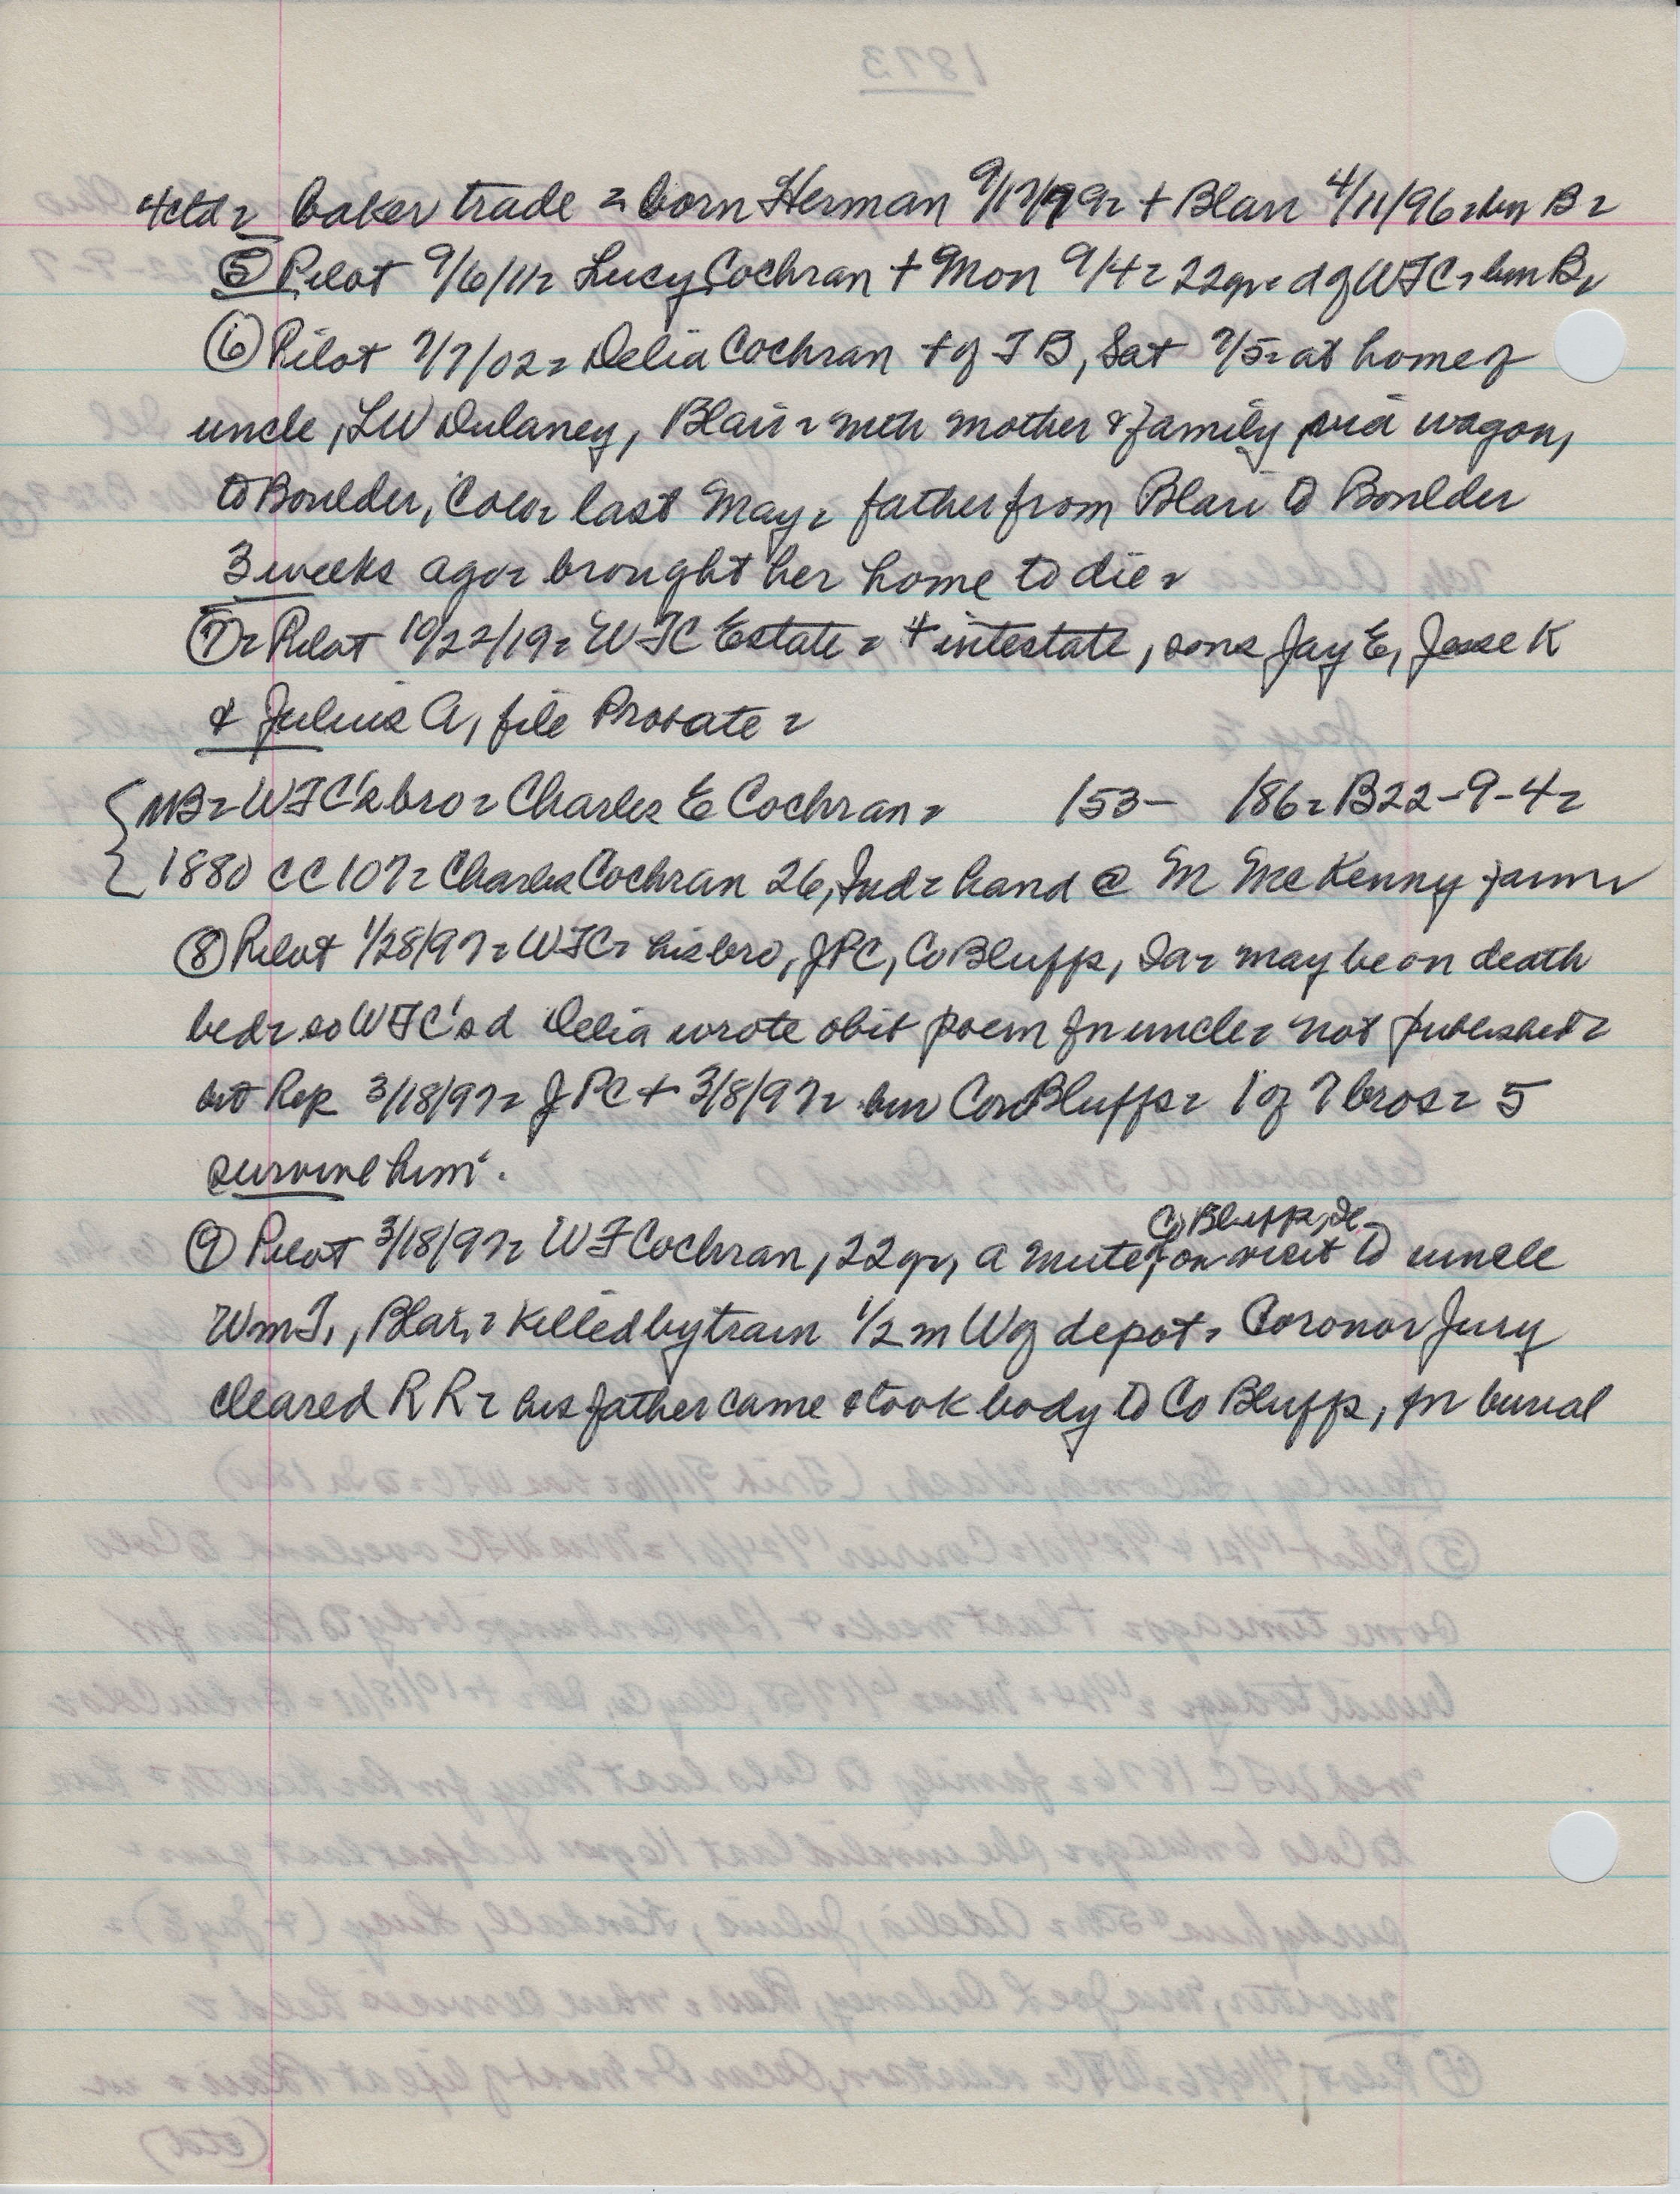 4ctd = baker trade = born Herman 9/17/79 = + Blair 4/11/96 = bur B =
⑤ Pilot 9/6/11 = Lucy Cochran + Mon 9/4 = 22yr = d of WFC = bur B =
⑥ Pilot 7/7/02 = Delia Cochran + of TB, Sat 7/5 = at home of
uncle, LW Dulaney, Blair = with mother & family via wagon,
to Boulder, Colo = last May = father from Blair to Boulder
3 weeks ago = brought her home to die =
⑦ = Pilot 10/22/19 = WFC Estate = + intestate, sons Jay E, Jesse K
& Julius A, file Probate =
NB = WFC's bro = Charles E Cochran = 153- 186 = B22-9-4 =
1880 CC 107 = Charles Cochran 26, Ind = hand @ M McKenny farm =
⑧ Pilot 1/28/97 = WFC = his bro, JPC, Co Bluffs, Ia = may be on death
bed = so WFC's d Delia wrote obit poem for uncle = not published =
but Rep 3/18/97 = JPC + 3/8/97 = bur Co Bluffs = 1 of 7 bros = 5
survive him.
Co Bluffs, Ia
⑨ Pilot 3/18/97 = WF Cochran, 22yr, a mute, on visit to uncle
Wm F., Blair, = killed by train 1/2 m W of depot = Coronor Jury
cleared RR = his father came & took body to Co Bluffs, for burial